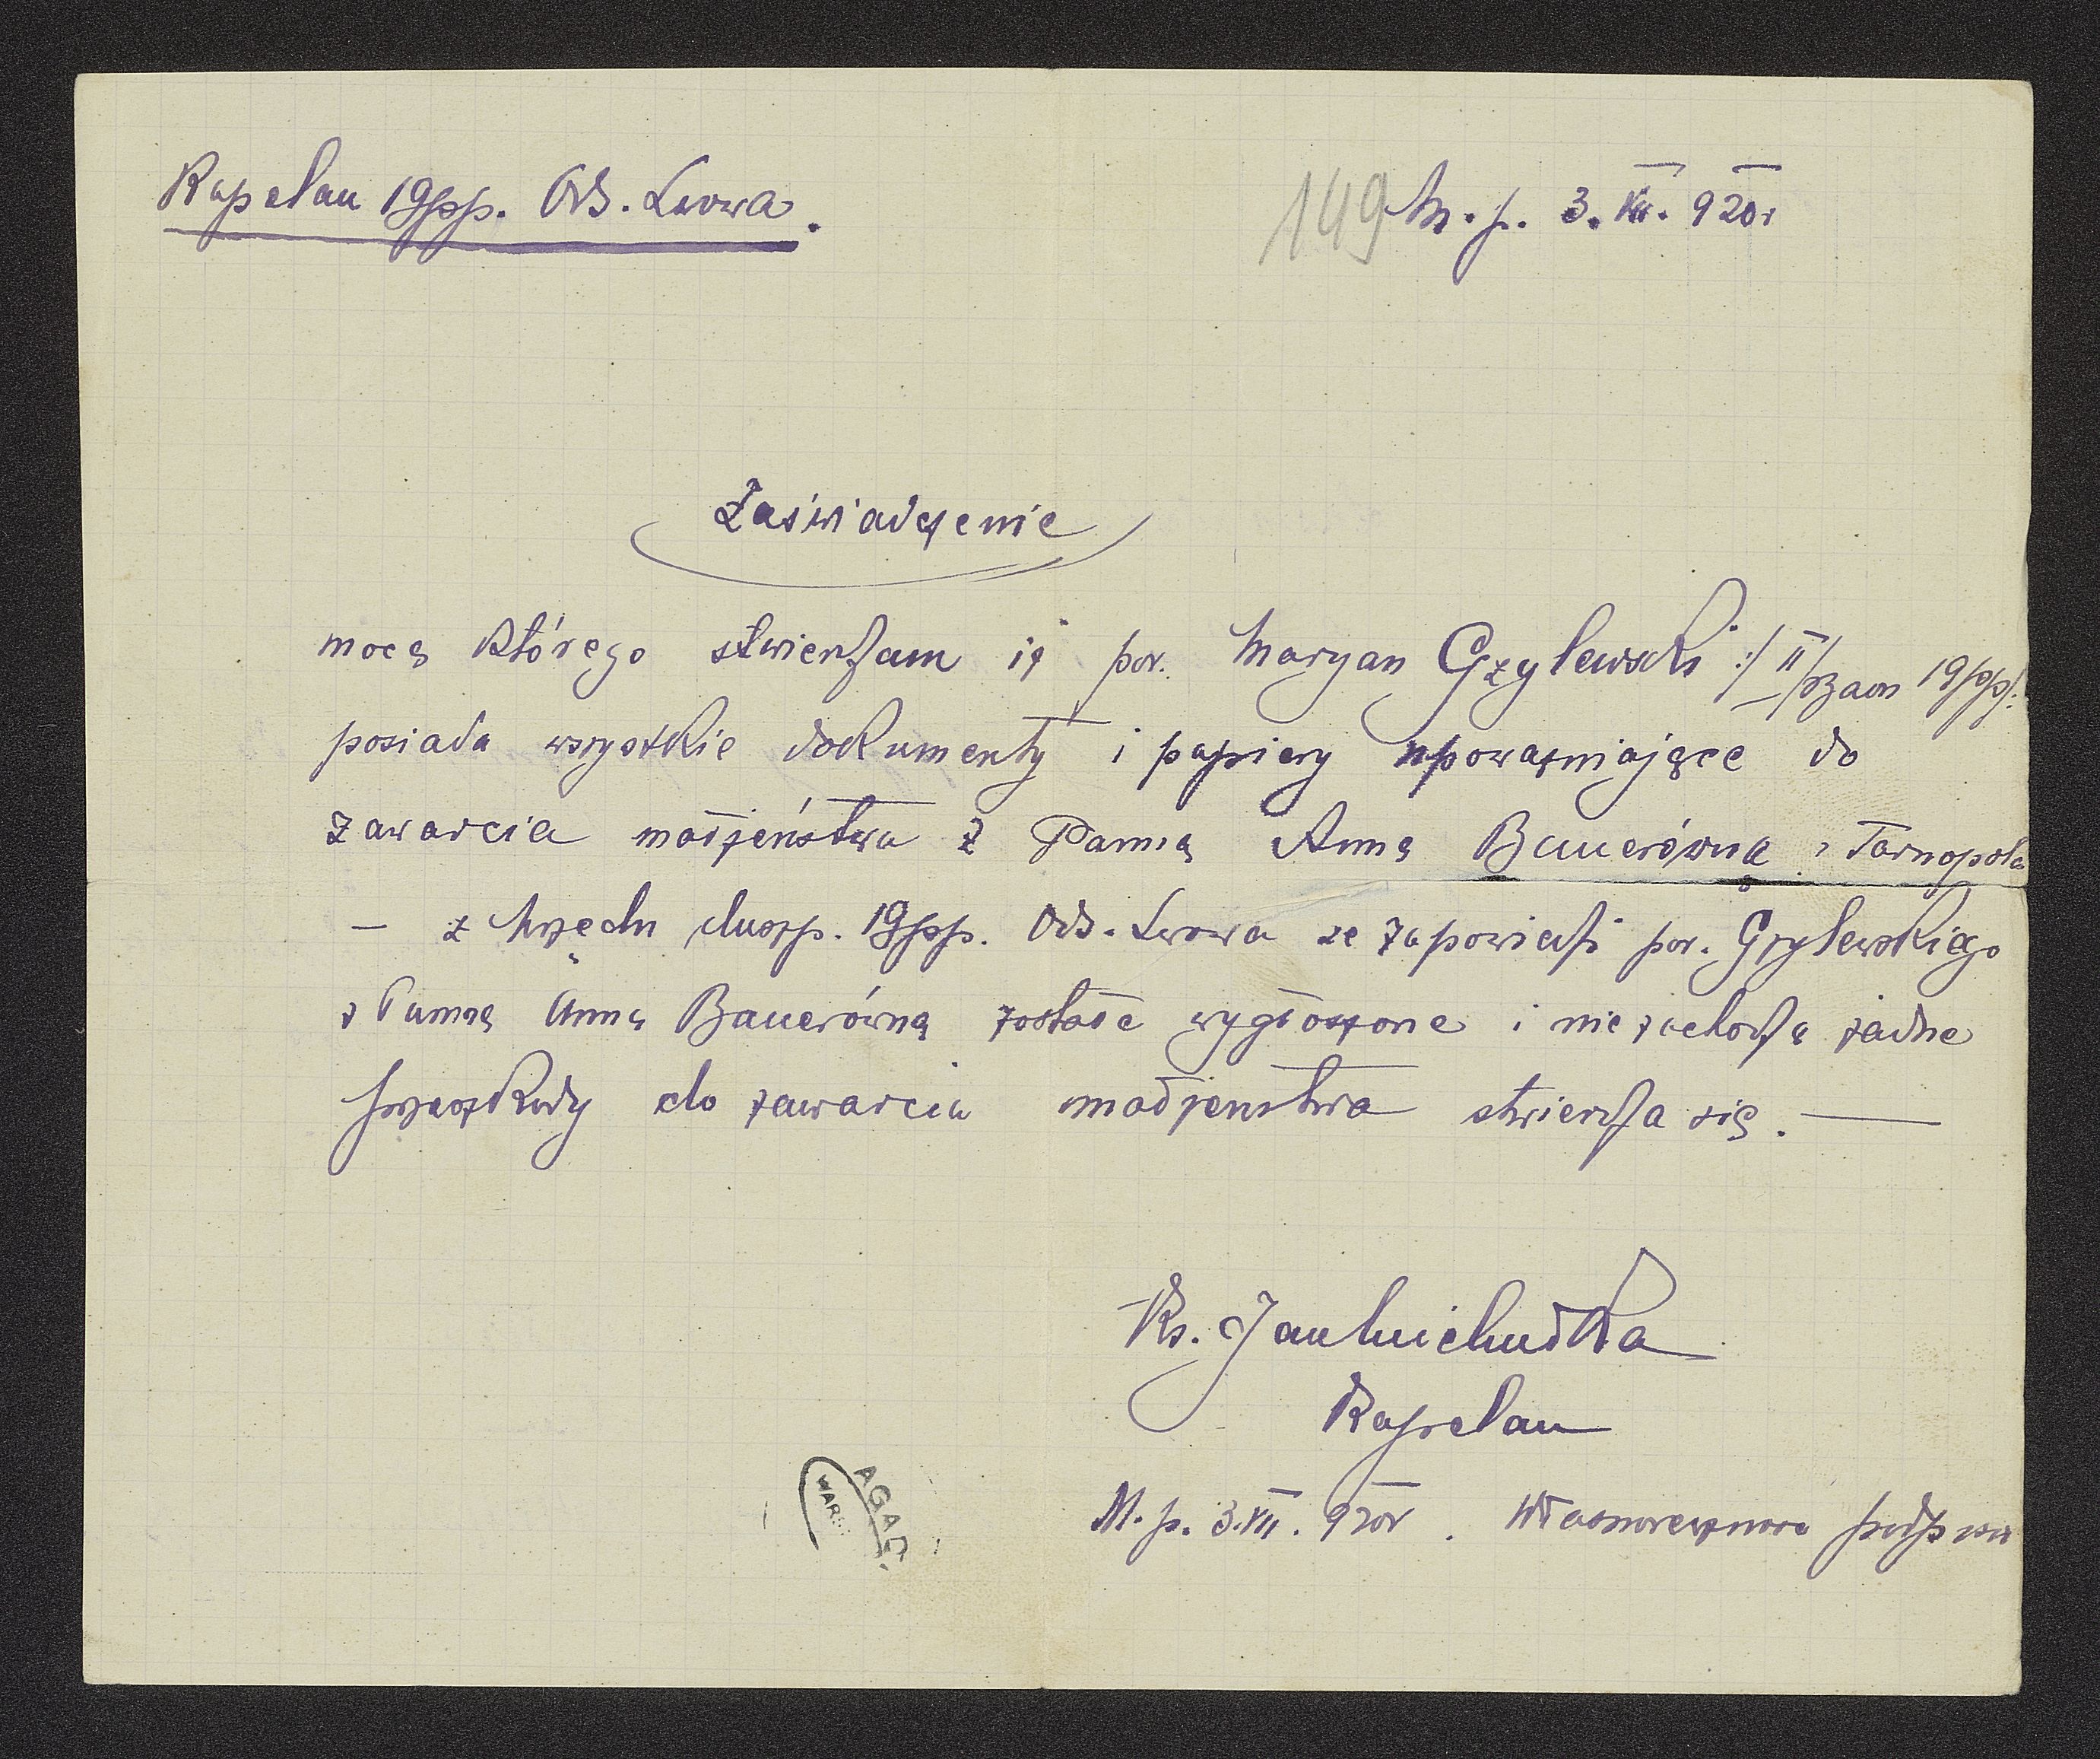 Kapelan 19pp. Ods. Lwowa.
149 M. p. 3. XII. 920r
Zaświadczenie
mocą którego stwierdzam iż por. Maryan Grzylewski :/ II/Baon 19pp/:
posiada wszystkie dokumenty i papiery upoważniające do
zawarcia małżeństwa z Panną Anną Bauerówną z Tarnopola
— z Urzędu duszp. 19pp. Ods. Lwowa że zapowiedzi por. Grzylewskiego
z Panną Anną Bauerówną zostałe wygłoszone i nie zachodzą żadne
przeszkody do zawarcia małżenstwa stwierdza się. —
Ks. Jan Michudka
Kapelan
M. p. 3. VII. 920r. Własnoręczność
AGAD
WAR